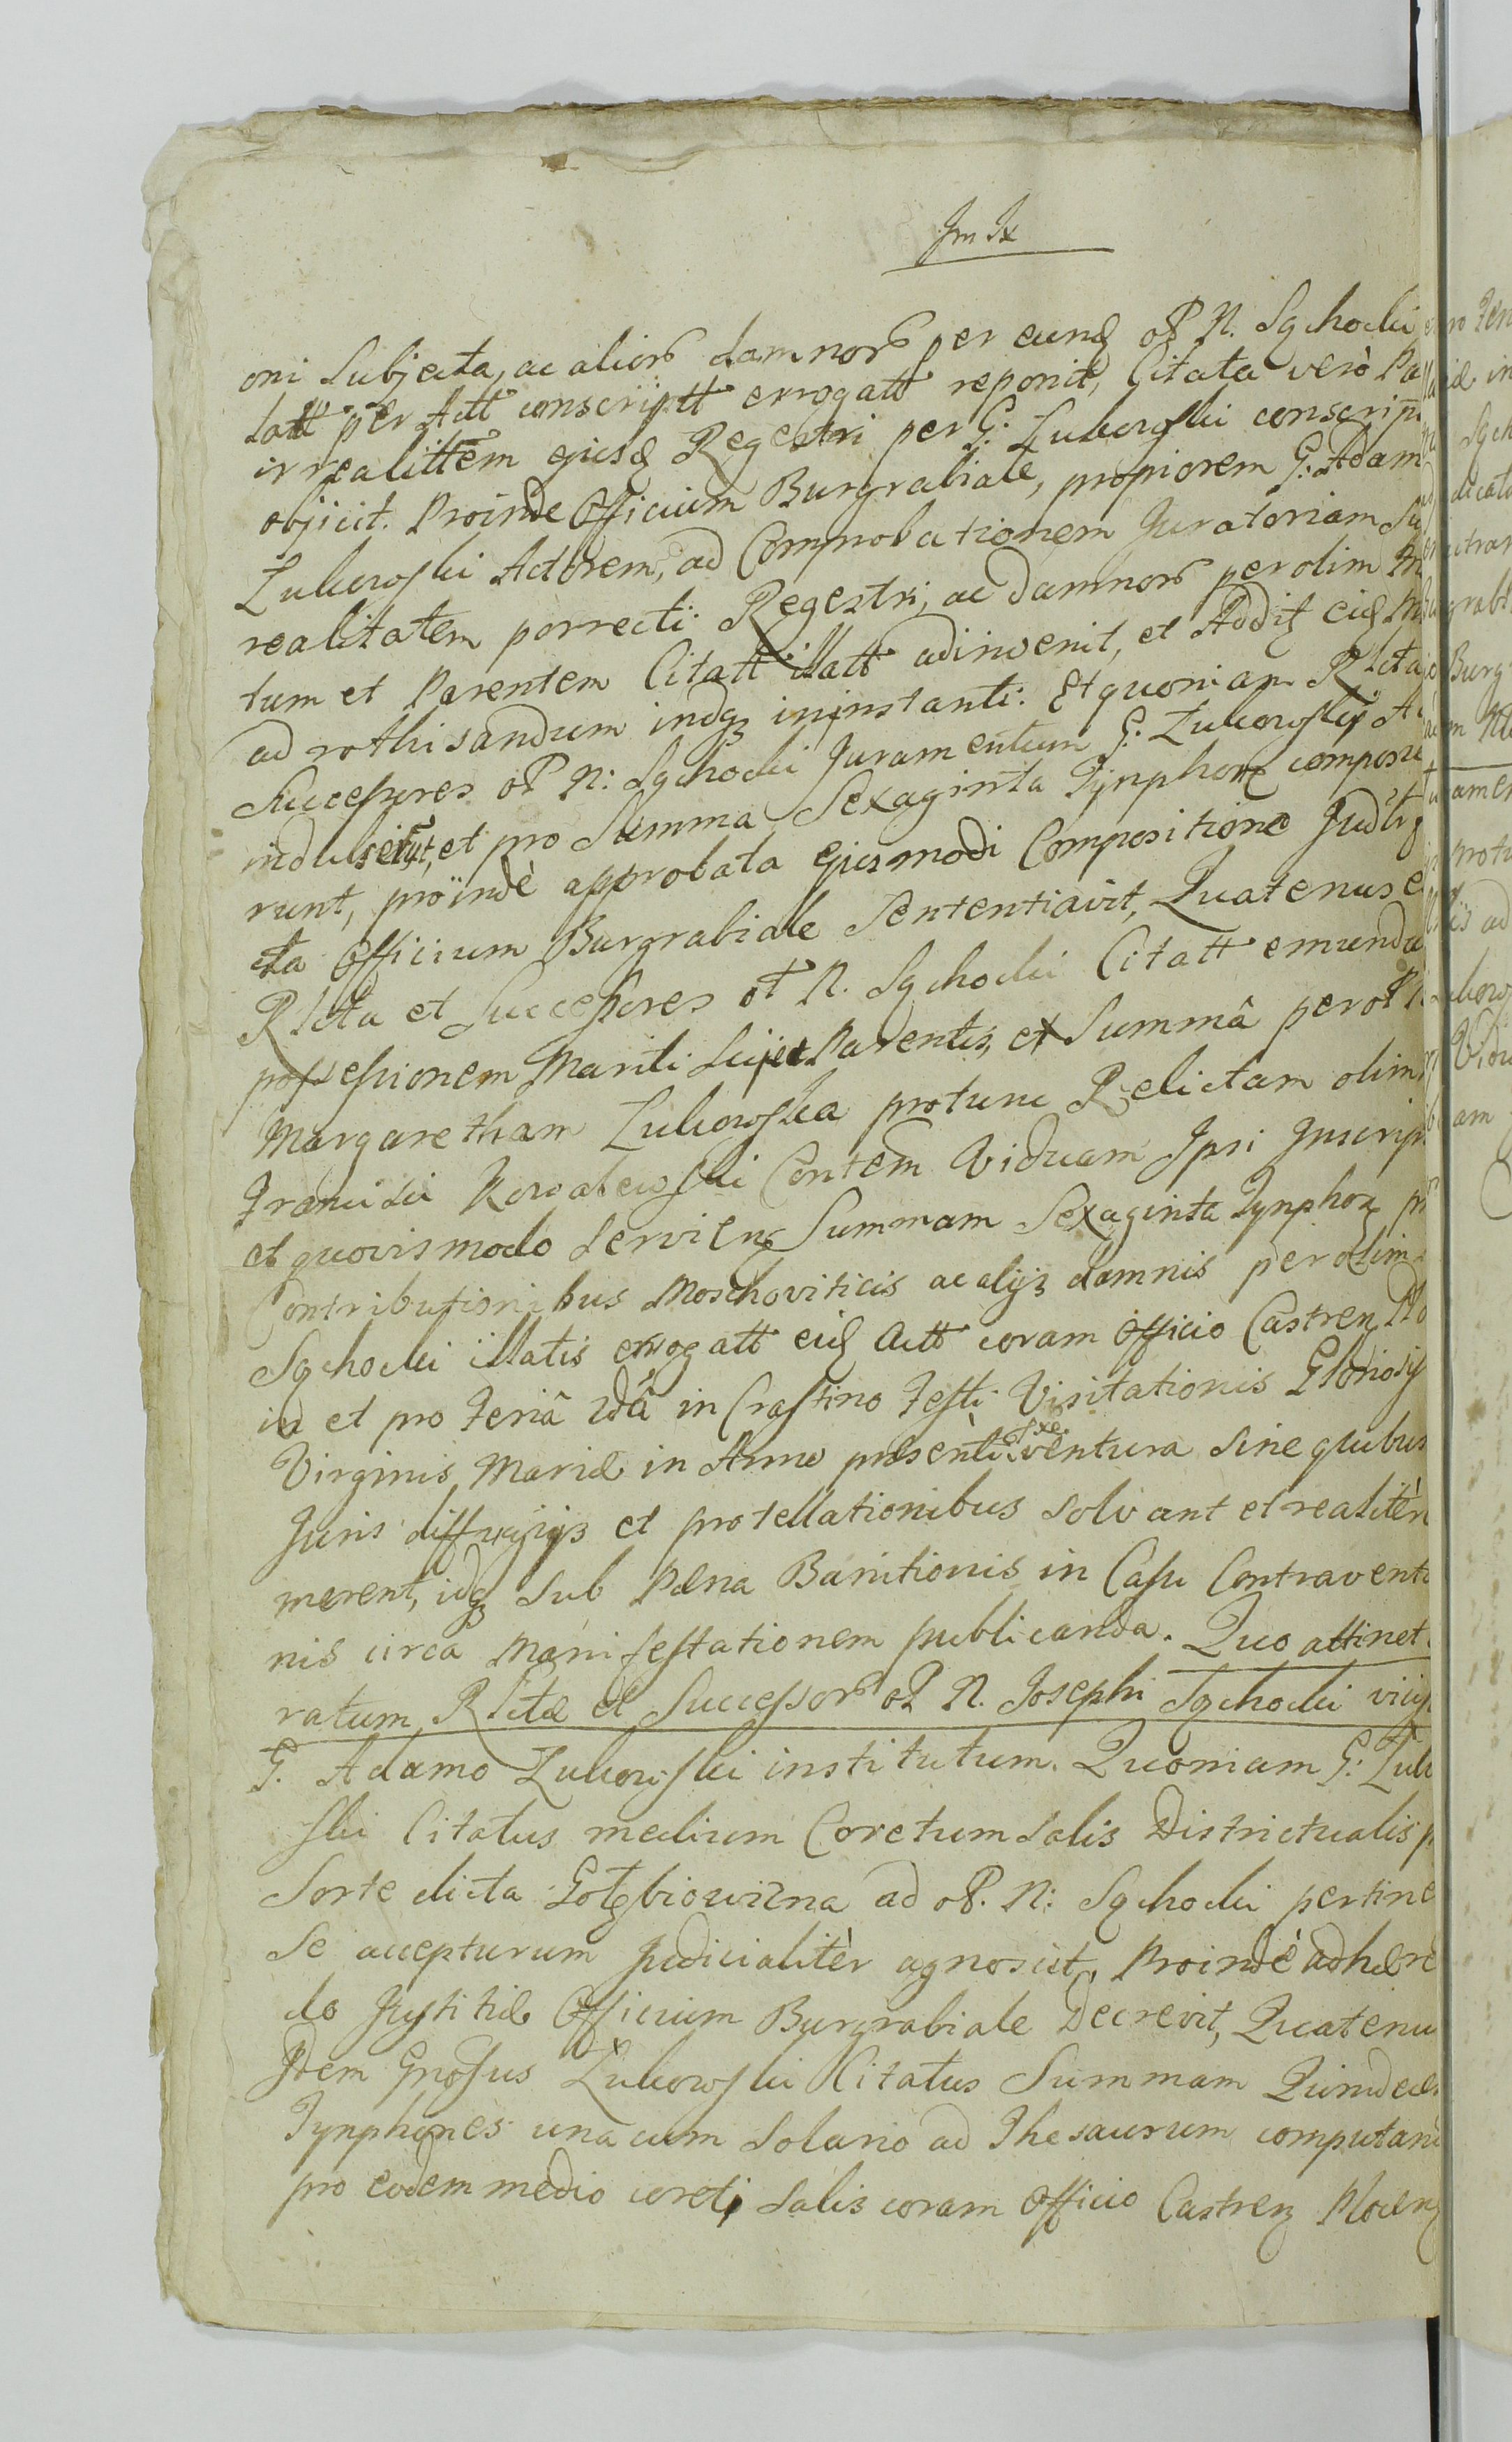 Jm Jx
oni Subjecta, ac alior damnor per eund ol N. Sqchocki
Latt per Actt conscriptt errogatt reponit, Citata verò Pa
irrealittem ejusd Regestri per G: Zukowski conscrip
objicit. Proinde Officium Burgrabiale, propiorem G: Adam
Zukowski Actorem, ad Comprobationem Juratoriam Su
realitatem porrecti Regestri, ac damnor per olim
tum et Parentem Citatt illatt adinvenit, et Addit eid
ad rothisandum indq in instanti. Et quoniam Rlicta
Successores ol N: Sqchocki Juramentum G: Zukowskij A
indulserut, et pro Summa Sexaginta Tynphon composue
runt, proinde approbata ejusmodi Compositione Judi
cta Officium Burgrabiale Sententiavit, Quatenus e
Rlicta et Successores ol N. Sqchocki Citatt emunda
possessionem Mariti Sui et Parentis, et Summâ per ol N
Margaretham Zukowska protunc Relictam olim
Francisci Kowalewski Contem Viduam Ipsi Inscrip
et quovis modo Servien Summam Sexaginta Tynphon pr
Contributionibus Moschoviticis ac alijs damnis per olim
Sqchocki illatis errogatt eid Actt coram Officio Castren Plo
in et pro Feriâ 2dâ in Crastino Festi Visitationis Gloriosis
Virginis Mariæ in Anno præsenti Sxe ventura Sine quibus
Juris diffugijs et protellationibus Solvant et realitèr
merent, idq Sub Pæna Banitionis in Casu Contraventi
nis circa Manifestationem publicanda. Quo attinet
ratum Rlictæ et Successor ol N. Josephi Sqchocki vicis
G. Adamo Zukowski institutum. Quoniam G: Zuko
ski Citatus medium Coretum Salis Districtualis p
Sorte dicta Gołębiowizna ad ol. N: Sqchocki pertine
Se accepturum Judicialitèr agnoscit, Proindè adhære
do Justitiæ Officium Burgrabiale Decrevit, Quatenu
Idem Gnosus Zukowski Citatus Summam Quindeci
Tynphones una cum Solario ad Thesaurum computan
pro eodem medio coreti Salis coram Officio Castren Plocen